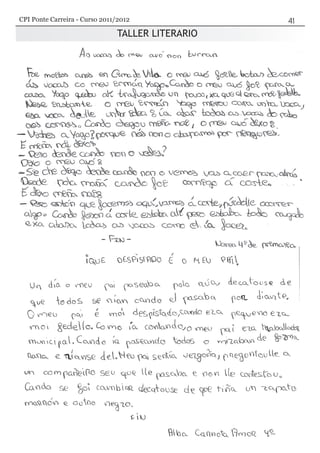 CPI Ponte Carreira - Curso 2011/2012 41
TALLER LITERARIO
As vacas do meu avó non turran
Fai moitos anos en Cima de Vila o meu avó foille botar de comer
ás vacas co meu Ermán Yago. Cando o meu avó foi para a
casa Yago quedou alí traballando un pouco, xa que el era moi
Nese instante o meu Ermán Yago mirou cara unha vaca,
esa vaca doulle unha idea: ía atar todas as vacas do rabo
aos cornos. Cando chegou miña nai, o meu avó dixo:
- Viches a Yago? porque nós non o atopamos por ningures.
E miña nai dixo:
- Pero dende cando non o vedes?
Dixo o meu avó:
- Se che digo dende cando non o vemos vas a caer para atrás.
Desde pola mañá cando foi comigo á corte.
E dixo miña nai:
- Pero están que facemos aquí, vamos á corte, puidolle ocorrer
algo. Cando foron á corte estaba alí pero estaba todo cagado
e xa ataba todas as vacas como el ía facer.
- FIN -
Nerea 4º de primaria
¡QUE DESPISTADO É O MEU PAI!
Un día o meu pai paseaba pola rúa, decatouse de
que todos se rían cando el pasaba por diante.
O meu pai é moi despistado, cando era pequeno era
moi gordello. Como ía contando, o meu pai era traballador
municipal. Cando ía paseando todos o miraban de forma
rara e ríanse del. Meu pai sentía vergoña, preguntoulle a
un compañeiro seu que lle pasaba e non lle contestou.
Cando se foi cambiar decatouse de que tiña un zapato
marrón e outro negro.
FIN
Alba Carmota Amor 4º